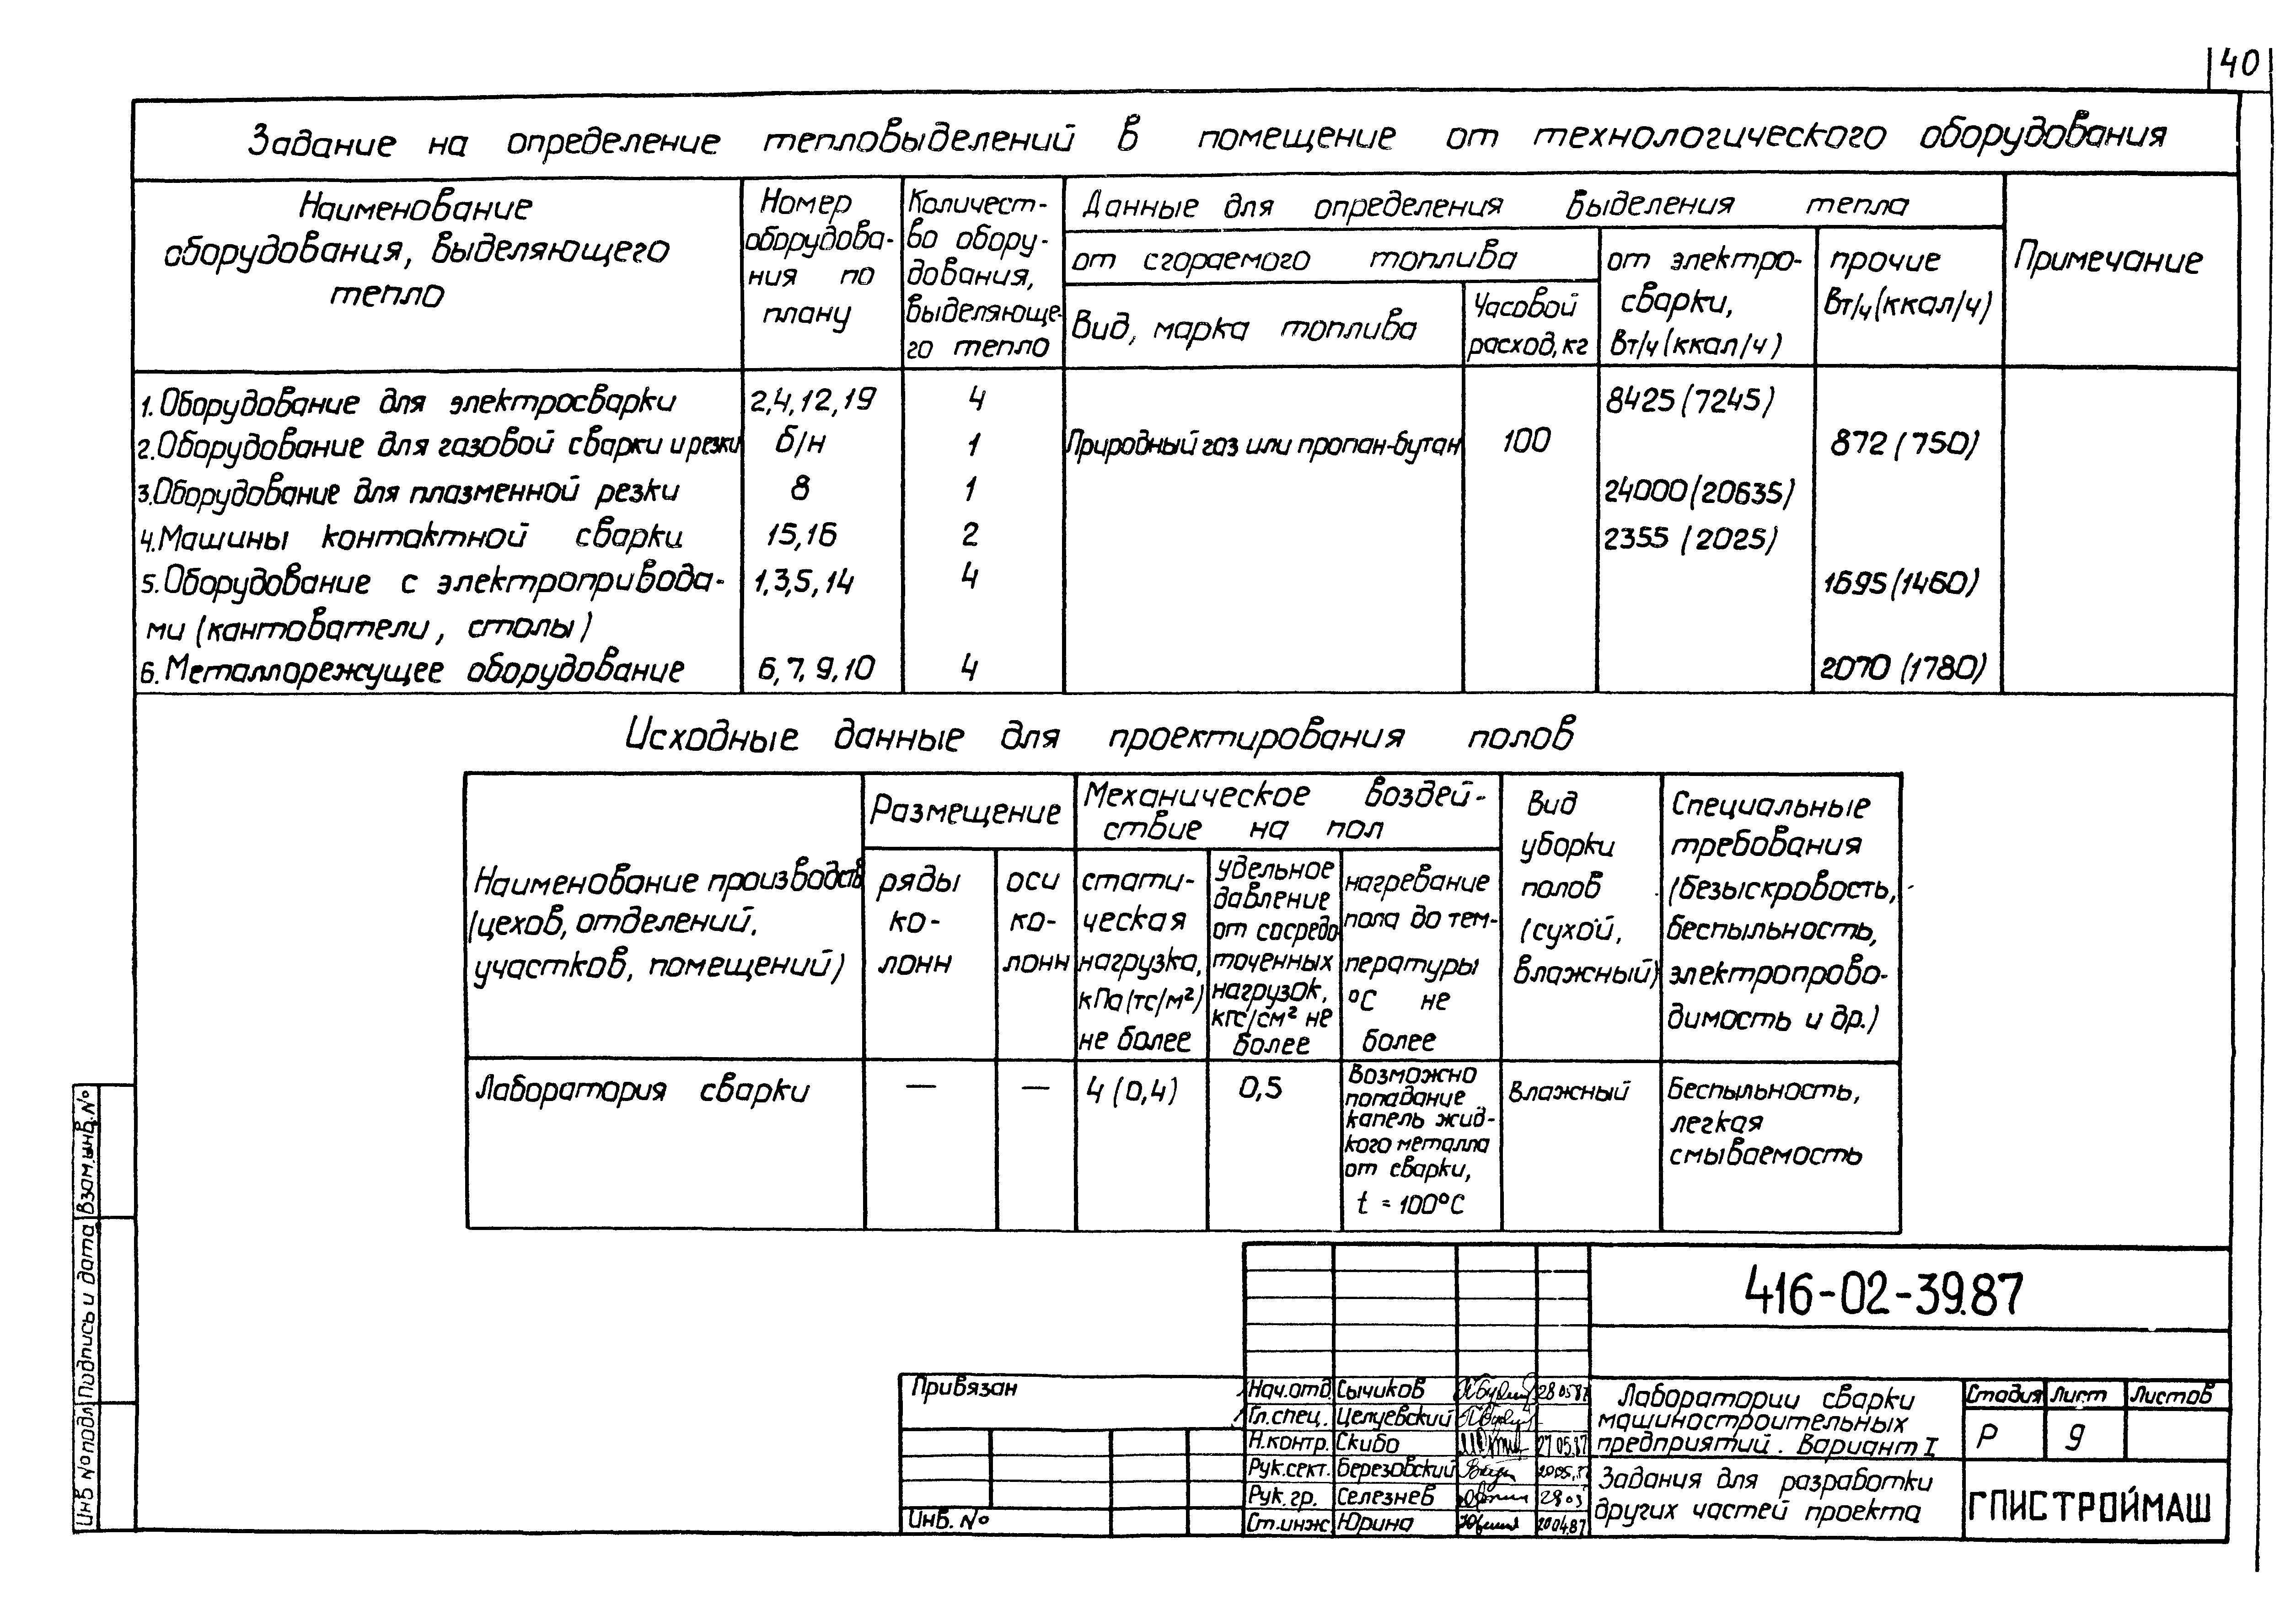 40
Задание на определение тепловыделений в помещение от технологического оборудования
Наименование
оборудования, выделяющего
тепло
Номер
оборудова-
ния по
плану
Количест-
во обору-
дования,
выделяюще-
го тепло
Данные для определения выделения тепла
от сгораемого топлива
Вид, марка топлива
Часовой
расход, кг
от электро-
сварки,
Вт/ч (ккал/ч)
прочие
Вт/ч (ккал/ч)
Примечание
1. Оборудование для электросварки 2,4,12,19 4 8425 (7245)
2. Оборудование для газовой сварки и резки б/н 1 Природный газ или пропан-бутан 100 872 (750)
3. Оборудование для плазменной резки 8 1 24000 (20635)
4. Машины контактной сварки 15,16 2 2355 (2025)
5. Оборудование с электропривода- 1,3,5,14 4 1695 (1460)
ми (кантователи, столы)
6. Металлорежущее оборудование 6,7,9,10 4 2070 (1780)
Исходные данные для проектирования полов
Наименование производств
(цехов, отделений,
участков, помещений)
Размещение
ряды
ко-
лонн
оси
ко-
лонн
Механическое воздей-
ствие на пол
стати-
ческая
нагрузка,
кПа (тс/м²)
не более
удельное
давление
от сосредо
точенных
нагрузок,
кгс/см² не
более
нагревание
пола до тем-
пературы
°С не
более
Вид
уборки
полов
(сухой,
влажный)
Специальные
требования
(безыскровость,
беспыльность,
электропрово-
димость и др.)
Лаборатория сварки — — 4 (0,4) 0,5
Возможно
попадание
капель жид-
кого металла
от сварки,
t = 100°С
влажный
Беспыльность,
легкая
смываемость
416-02-39.87
Привязан
Инв. №
Нач.отд. Сычиков 28.05.87
Гл.спец. Целуевский
Н.контр. Скибо 27.05.87
Рук.сект. Березовский
Рук. гр. Селезнев
Ст.инж. Юрина 20.04.87
Лаборатории сварки
машиностроительных
предприятий. Вариант I
Стадия Лист Листов
Р 9
Задания для разработки
других частей проекта
ГПИСТРОЙМАШ
Взам.инв.№
Подпись и дата
Инв № подл